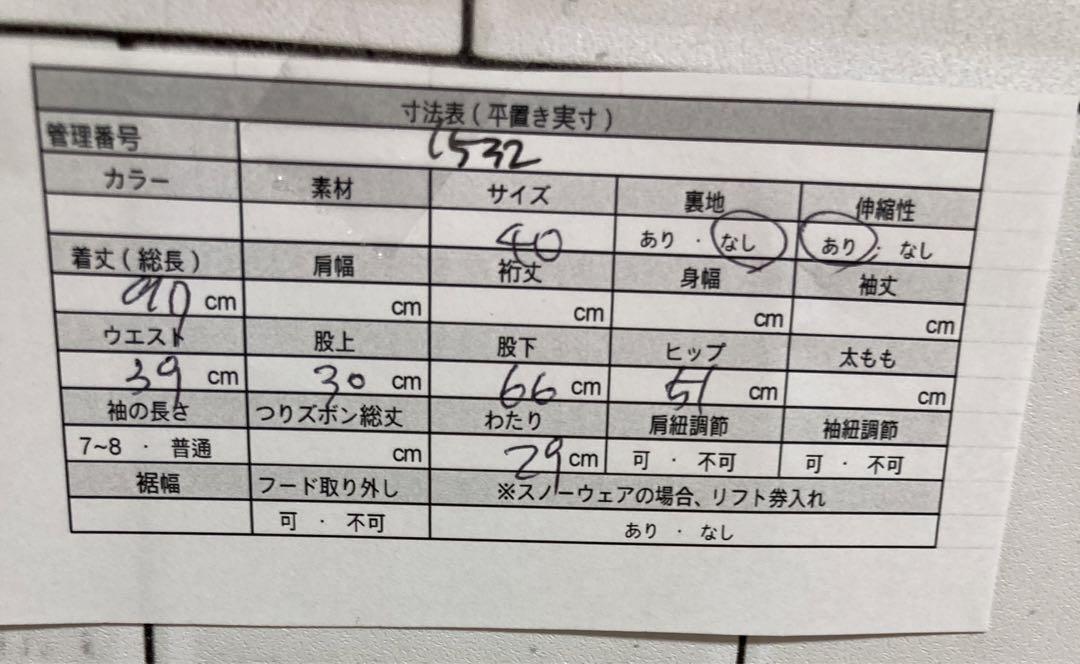 寸法表(平置き実寸)
管理番号 1532
カラー 素材 サイズ 裏地 伸縮性
40 あり・なし あり・なし
着丈(総長) 肩幅 裄丈 身幅 袖丈
90 cm cm cm cm cm
ウエスト 股上 股下 ヒップ 太もも
39 cm 30 cm 66 cm 51 cm cm
袖の長さ つりズボン総丈 わたり 肩紐調節 袖紐調節
7~8・普通 cm 29 cm 可・不可 可・不可
裾幅 フード取り外し ※スノーウェアの場合、リフト券入れ
可・不可 あり・なし